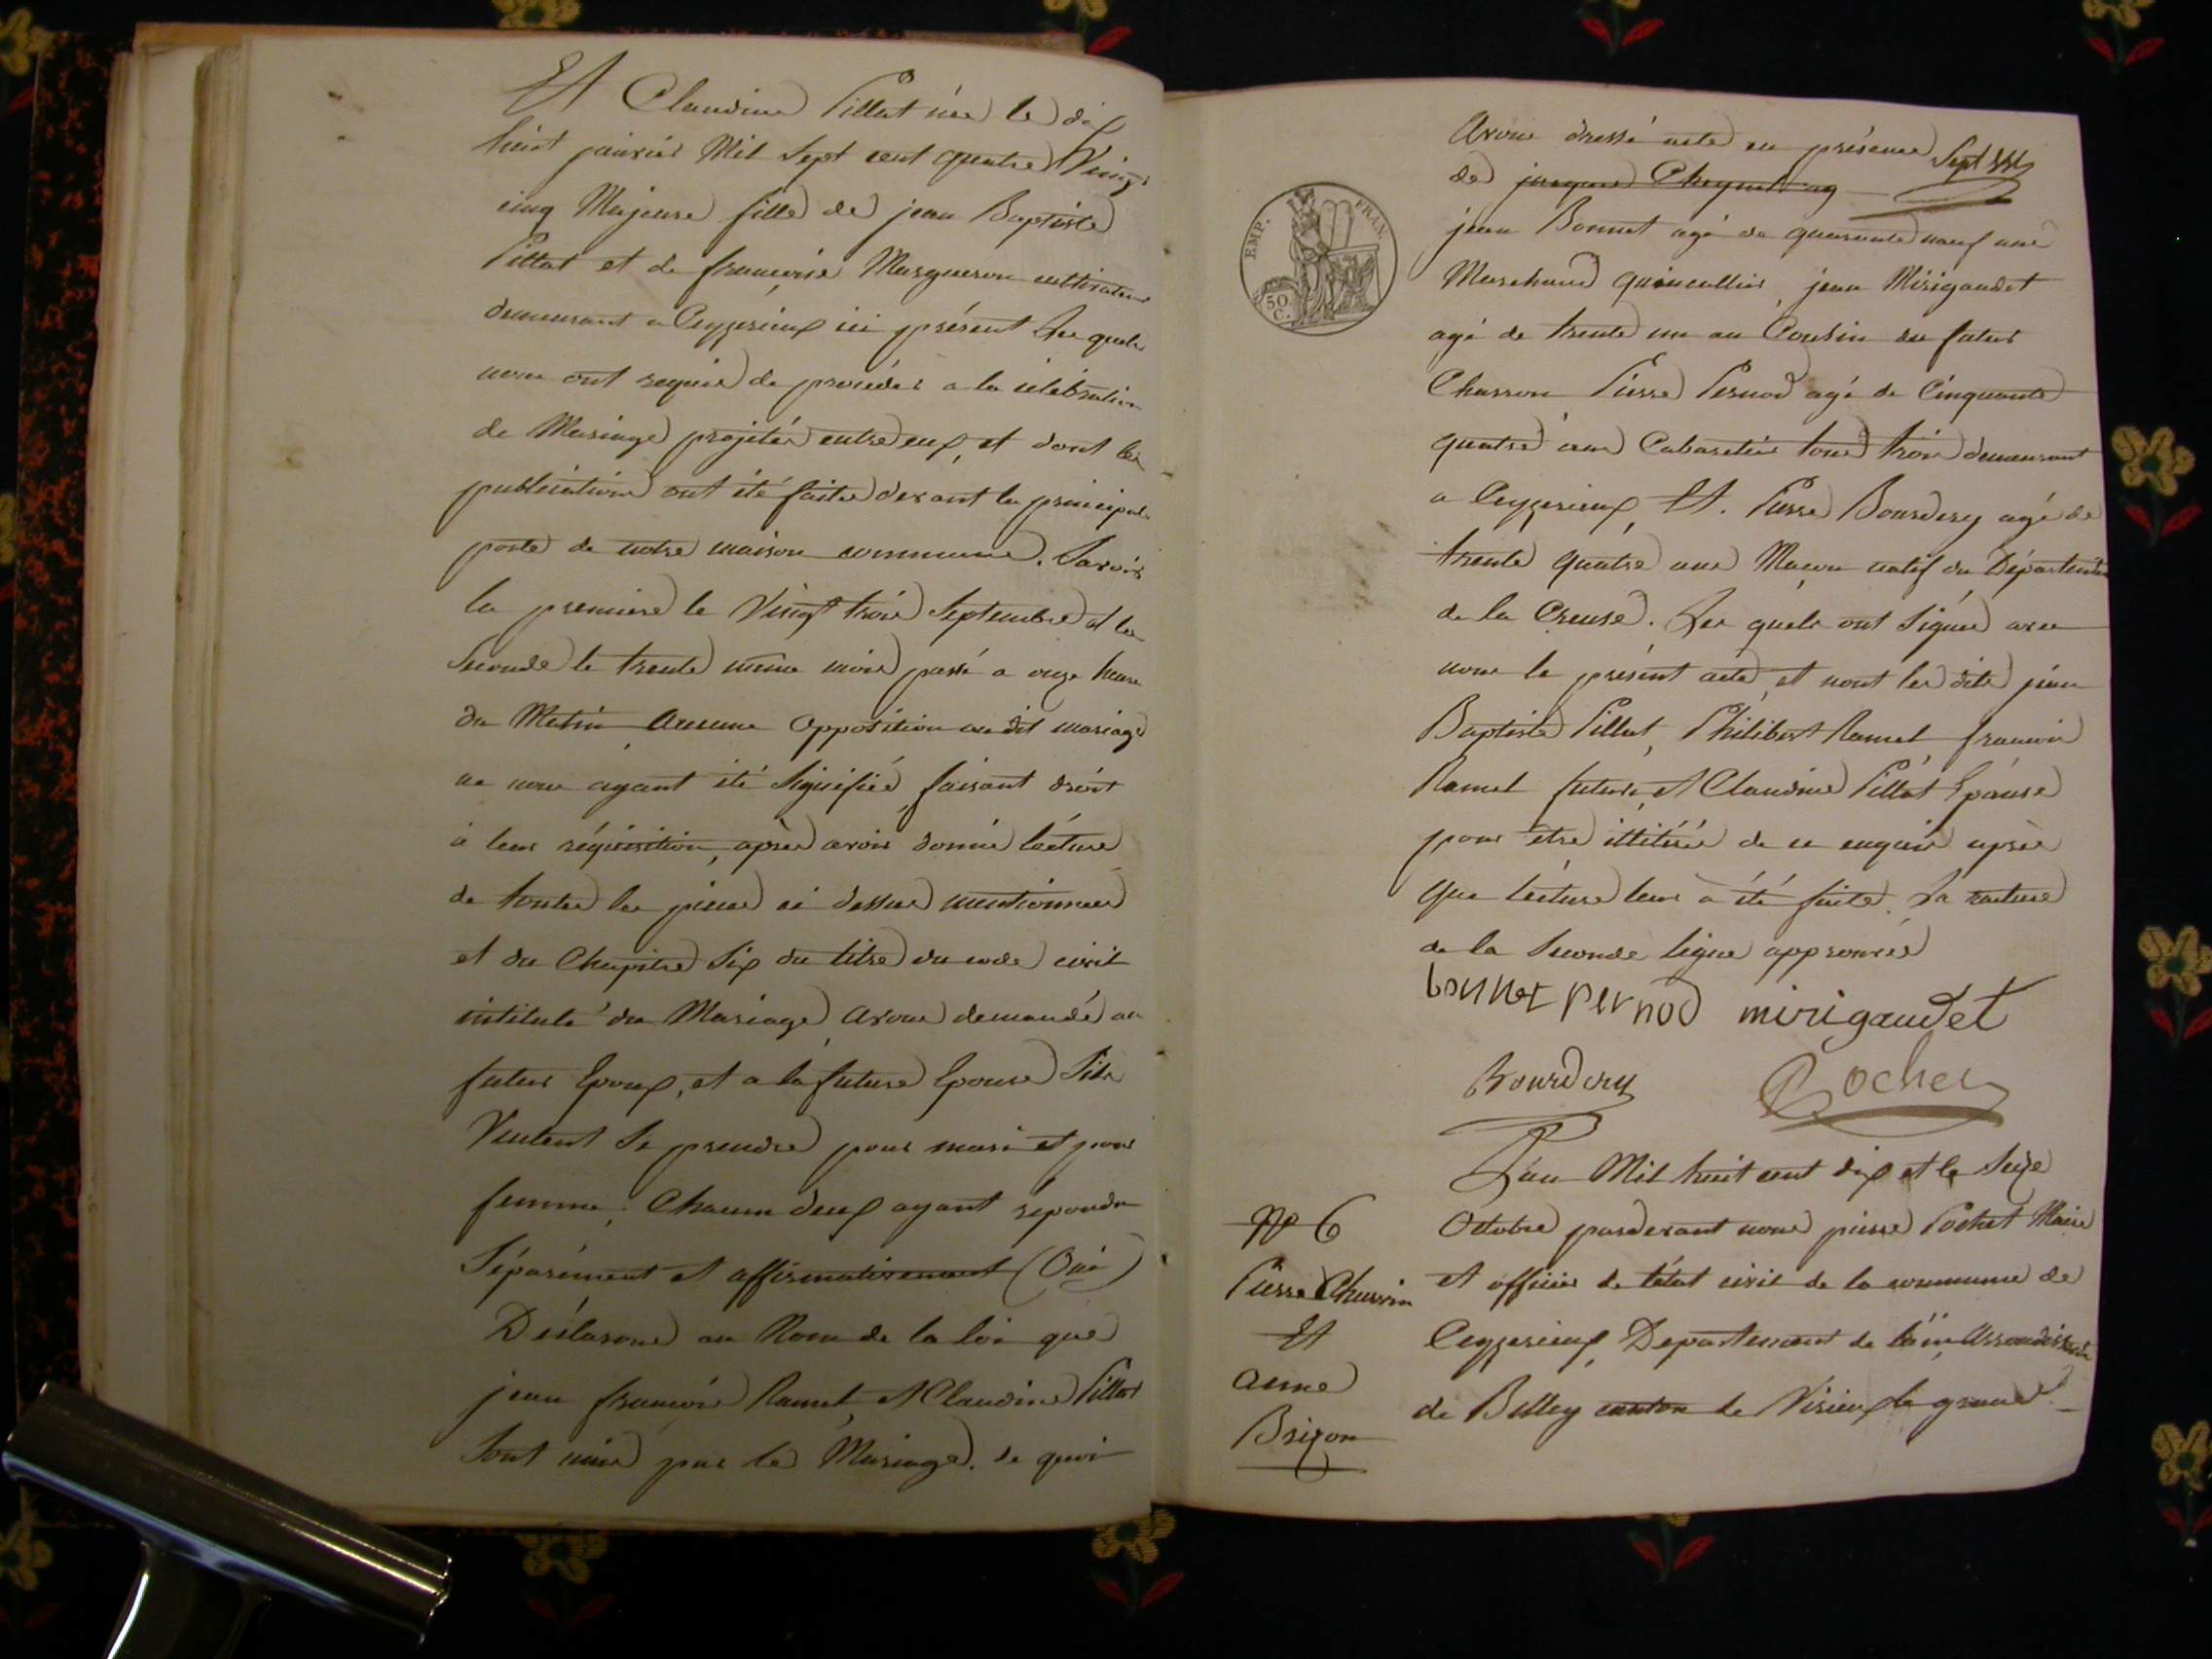 Et Claudine Pillat née le dix
huit janvier Mil Sept cent quatre Vingt
cinq Majeure fille de jean Baptiste
Pillat et de francoise Margueron cultivateur
demeurant a Ceyzerieux ici présent Les quels
nous ont requis de procéder a la célébration
de Mariage projetée entre eux, et dont les
publications ont été faites devant la principale
porte de notre maison commune. Savoir
la premiere le Vingt trois Septembre et la
Seconde le trente même mois passé a onze heure
du Matin Aucune Opposition au dit mariage
ne nous ayant été Signifiée, faisant droit
à leur réquisition, après avoir donné lécture
de toutes les pieces ci dessus mentionnees
et du Chapitre Six du titre du code civil
intitulé du Mariage, Avons demandé au
futur Epoux, et a la future Epouse Sils
Veulent Se prendre pour mari et pour
femme, Chacun deux ayant répondu
Séparément et affirmativement (Oui)
Déclarons au Nom de la loi que
jean francois Ramel et Claudine Pillat
Sont unis par le Mariage. de quoi
Avons dressé acte en présence
de jacques Cheynet ag
jean Bonnet agé de quarante neuf ans
Marchand quincallier, jean Mirigaudet
agé de trente un an Cousin du futur
Charron Pierre Pernod agé de Cinquante
quatre ans Cabaretier tous trois demeurant
a Ceyzerieux, Et. Pierre Bourdery agé de
trente quatre ans Maçon natif du Département
de la Creuse. Les quels ont Signés avec
nous le présent acte, et nont les dits jean
Baptiste Pillat, Philibert Ramel francois
Ramel future, et Claudine Pillat Epouse
pour être illitérés de ce enquis après
que lécture leur a été faite. La rature
de la Seconde ligne approuvés
bonnet pernod mirigaudet
Bourdery Pochet
L'an Mil huit cent dix et le Seize
Octobre pardevant nous pierre Pochet Maire
et officier de l'état civil de la commune de
Ceyzerieux, Departement de lain Arrondissement
de Belley canton de Virieux le grand
No 6
Pierre Charvin
Et
Anne
Brizon
EMP. FRAN.
50
C.